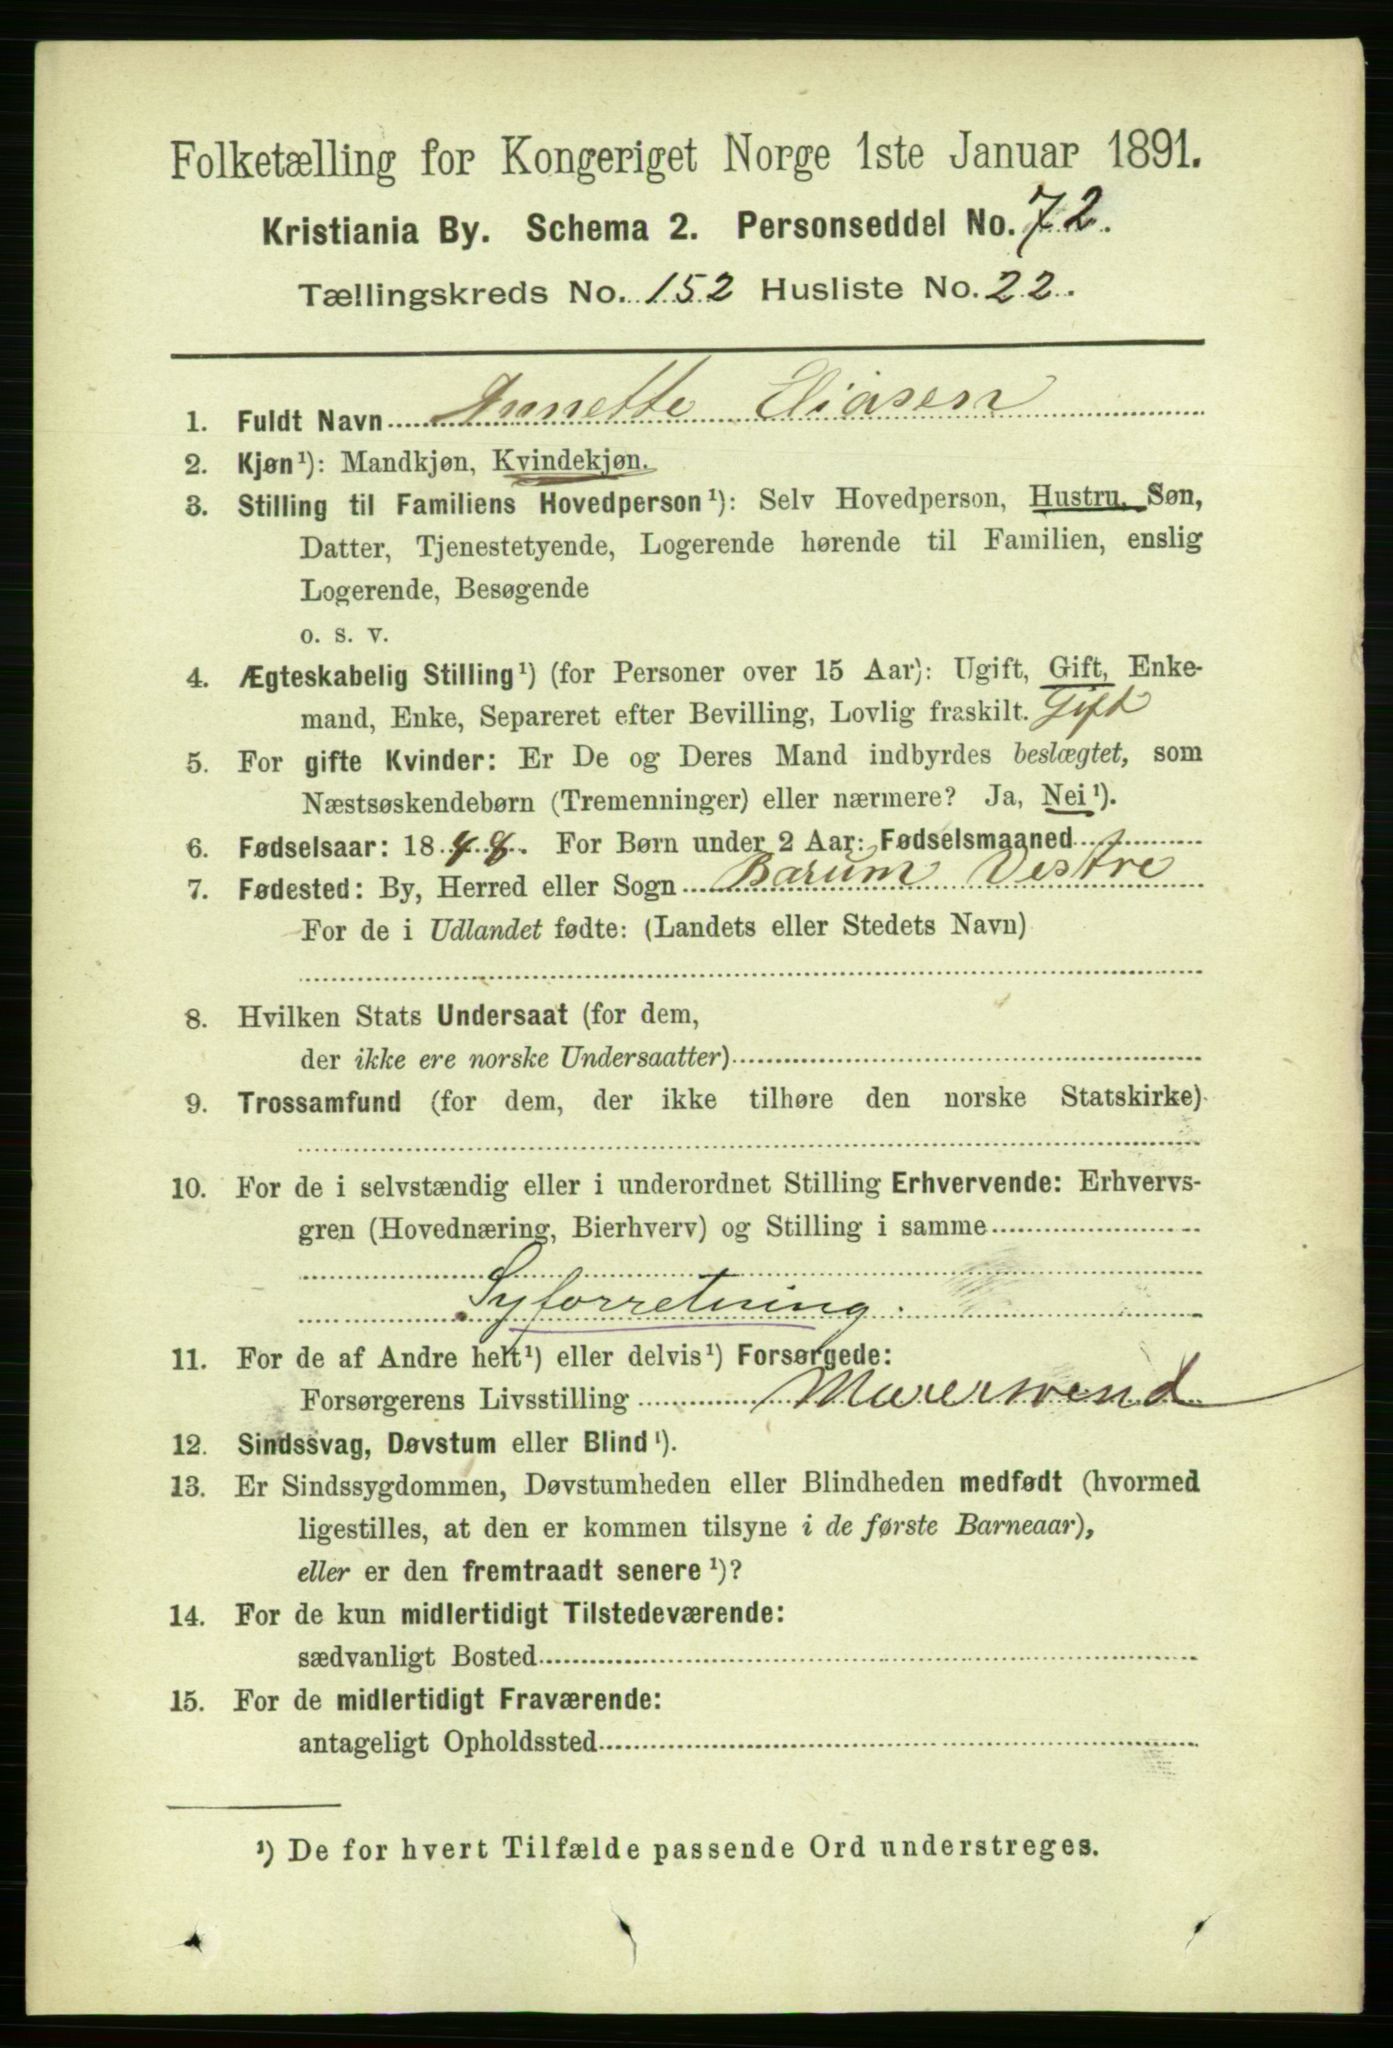 Folketælling for Kongeriget Norge 1ste Januar 1891.
Kristiania By. Schema 2. Personseddel No. 72.
Tællingskreds No. 152 Husliste No. 22.
1. Fuldt Navn Annette Eliasen
2. Kjøn¹): Mandkjøn, Kvindekjøn.
3. Stilling til Familiens Hovedperson¹): Selv Hovedperson, Hustru, Søn,
Datter, Tjenestetyende, Logerende hørende til Familien, enslig
Logerende, Besøgende
o. s. v.
4. Ægteskabelig Stilling¹) (for Personer over 15 Aar): Ugift, Gift, Enke-
mand, Enke, Separeret efter Bevilling, Lovlig fraskilt. Gift
5. For gifte Kvinder: Er De og Deres Mand indbyrdes beslægtet, som
Næstsøskendebørn (Tremenninger) eller nærmere? Ja, Nei¹).
6. Fødselsaar: 1848. For Børn under 2 Aar: Fødselsmaaned
7. Fødested: By, Herred eller Sogn Barum Vestre
For de i Udlandet fødte: (Landets eller Stedets Navn)
8. Hvilken Stats Undersaat (for dem,
der ikke ere norske Undersaatter)
9. Trossamfund (for dem, der ikke tilhøre den norske Statskirke)
10. For de i selvstændig eller i underordnet Stilling Erhvervende: Erhvervs-
gren (Hovednæring, Bierhverv) og Stilling i samme
Syforretning.
11. For de af Andre helt¹) eller delvis¹) Forsørgede:
Forsørgerens Livsstilling Murersvend
12. Sindssvag, Døvstum eller Blind¹).
13. Er Sindssygdommen, Døvstumheden eller Blindheden medfødt (hvormed
ligestilles, at den er kommen tilsyne i de første Barneaar),
eller er den fremtraadt senere¹)?
14. For de kun midlertidigt Tilstedeværende:
sædvanligt Bosted
15. For de midlertidigt Fraværende:
antageligt Opholdssted
¹) De for hvert Tilfælde passende Ord understreges.